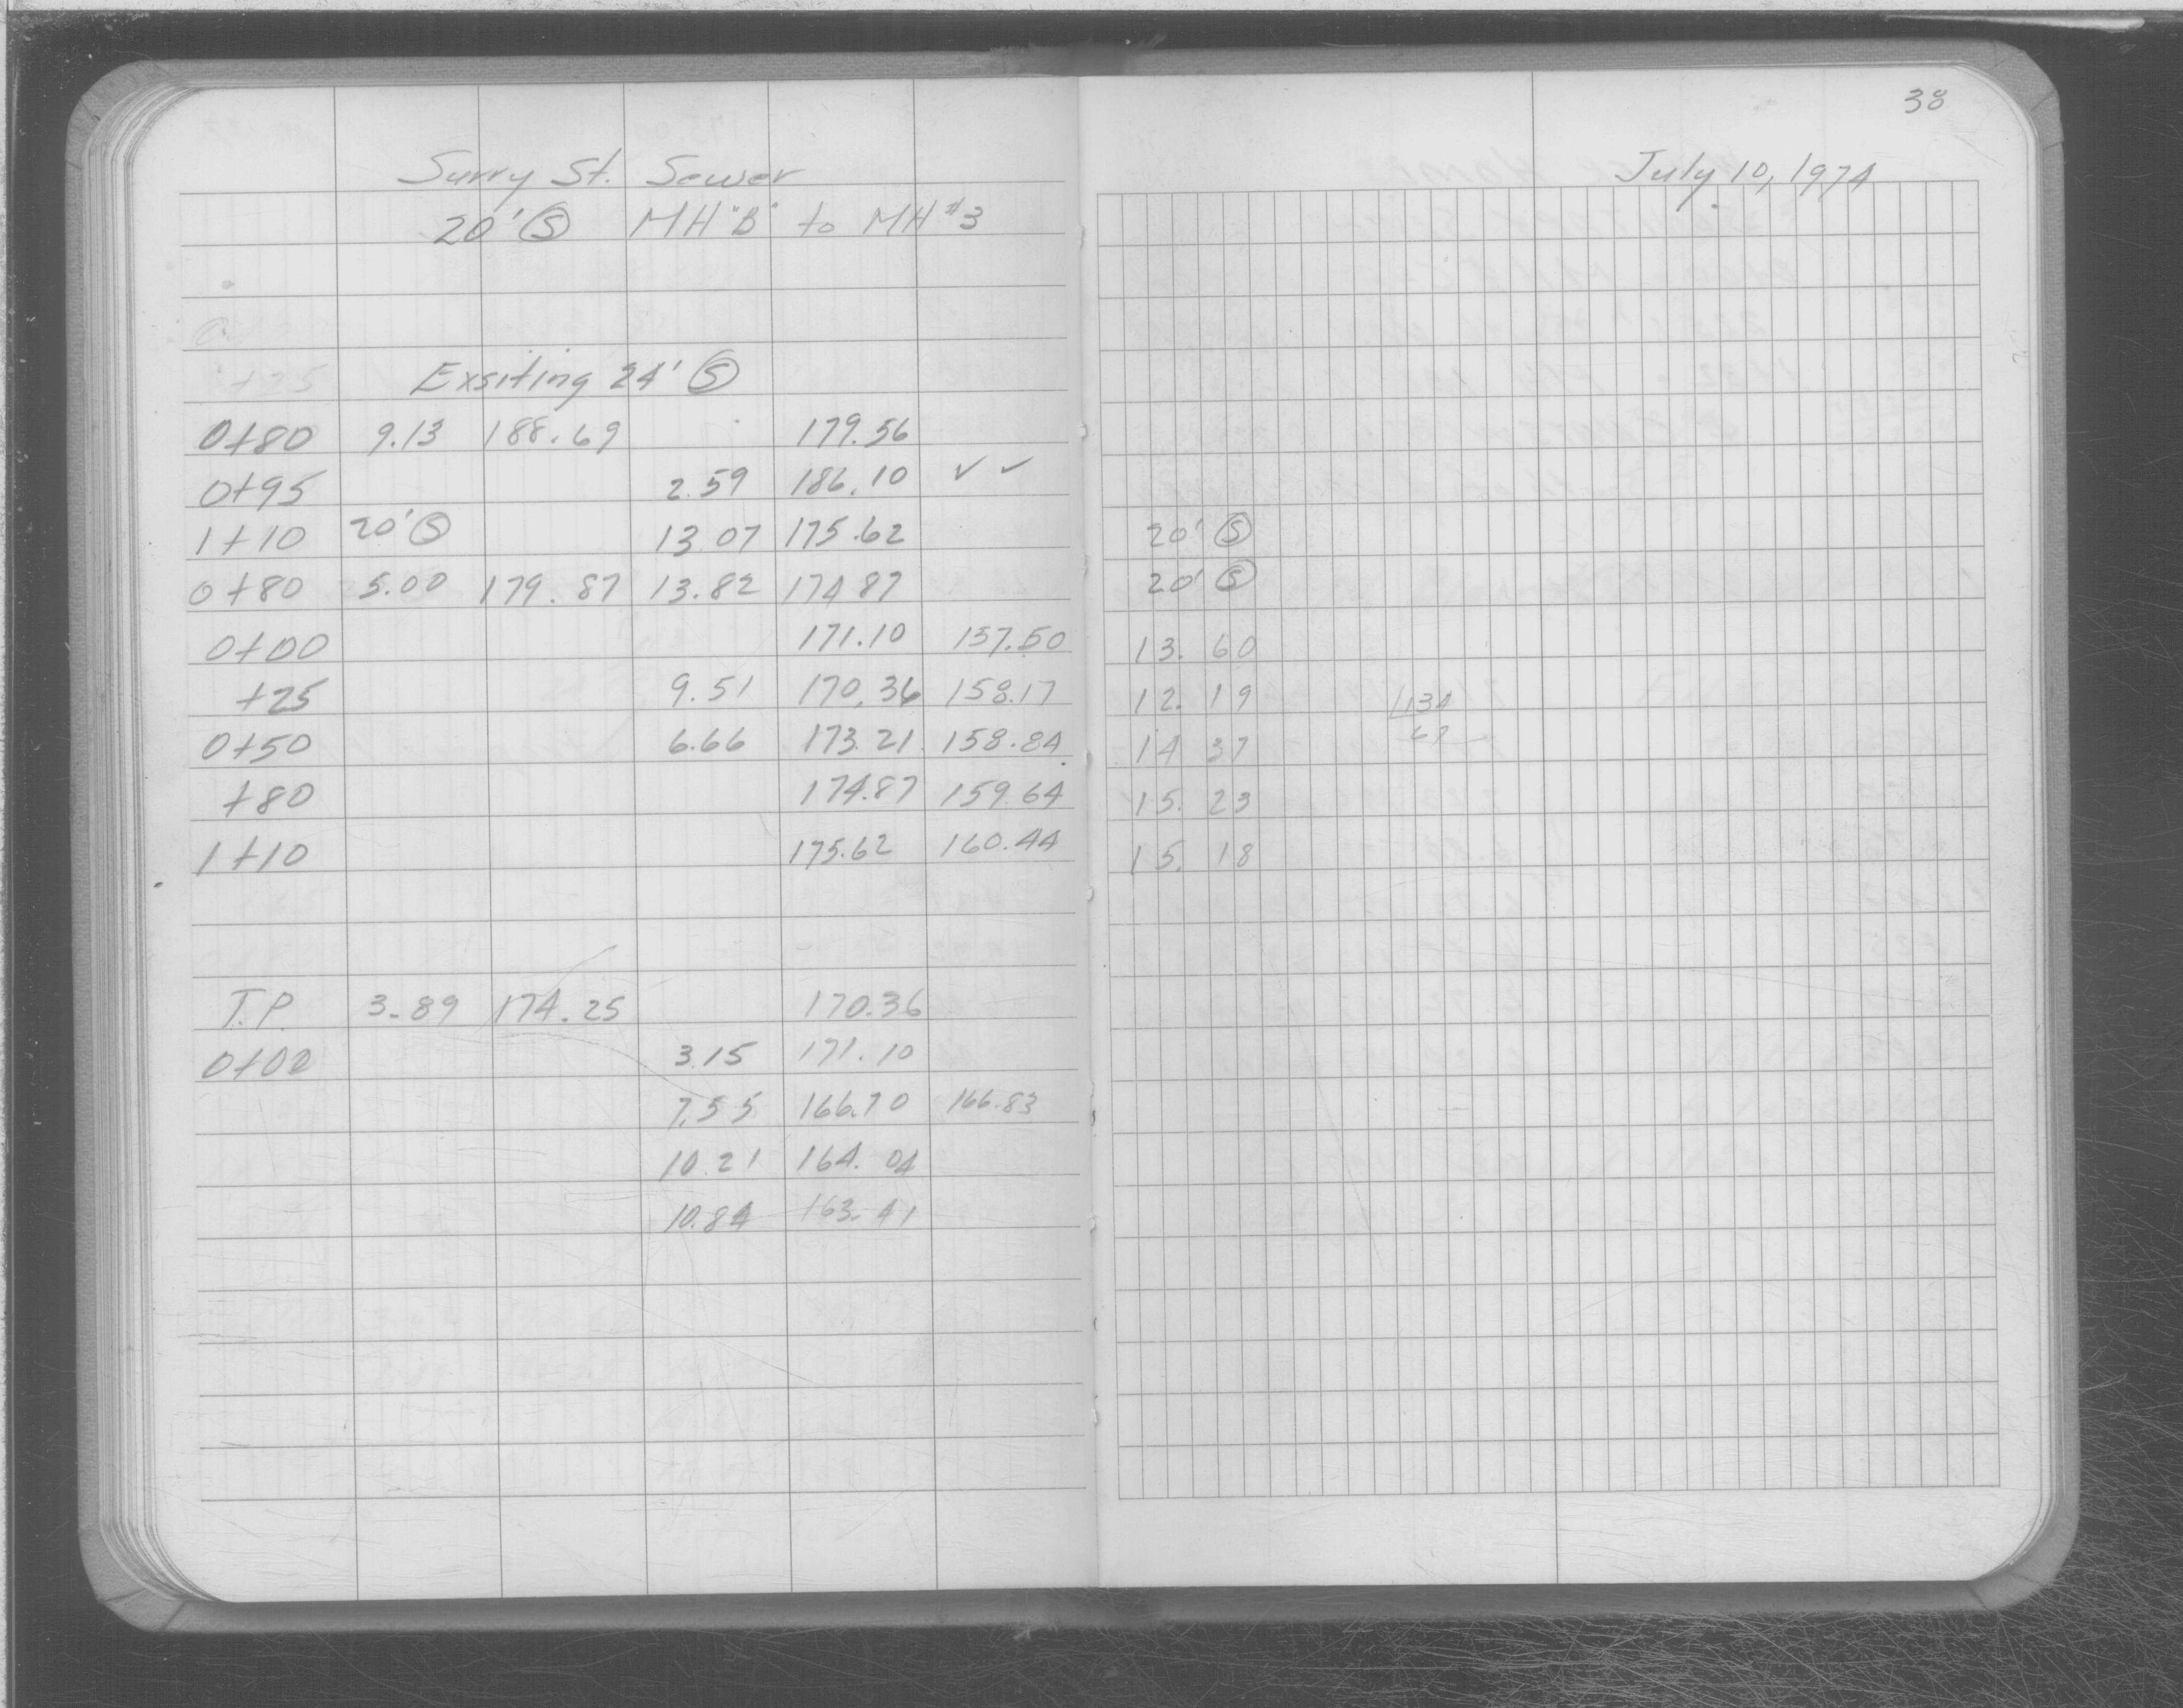 38
Surry St. Sewer July 10, 1974
20' Ⓢ MH "B" to MH #3
+25 Exsiting 24' Ⓢ
0+80 9.13 188.69 179.56
0+95 2.59 186.10 ✓ ✓
1+10 20' Ⓢ 13.07 175.62 20' Ⓢ
0+80 5.00 179.87 13.82 174.87 20' Ⓢ
0+00 171.10 157.50 13.60
+25 9.51 170.36 158.17 12.19 134
0+50 6.66 173.21 158.84 14 37 67
+80 174.87 159.64 15.23
1+10 175.62 160.44 15.18
T.P. 3.89 174.25 170.36
0+00 3.15 171.10
7.55 166.70 166.83
10.21 164.04
10.84 163.41